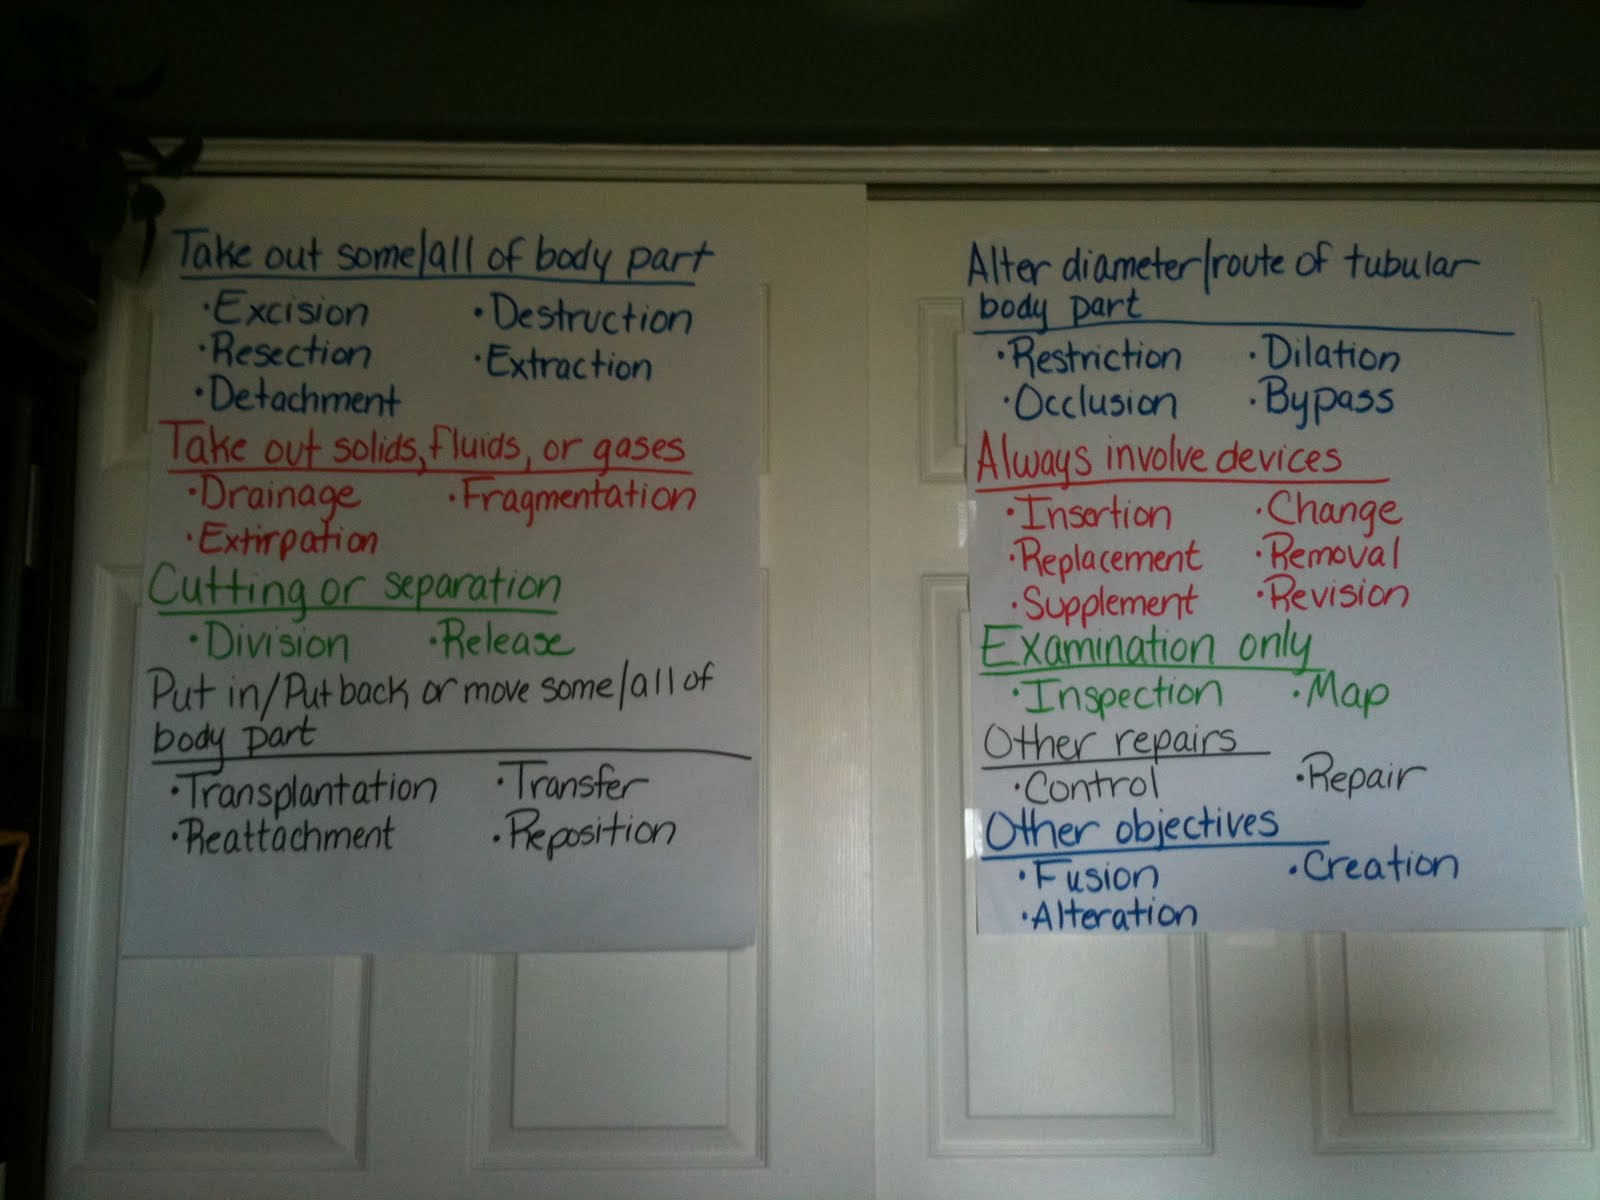 Take out some/all of body part
•Excision •Destruction
•Resection •Extraction
•Detachment
Take out solids, fluids, or gases
•Drainage •Fragmentation
•Extirpation
Cutting or separation
•Division •Release
Put in/Put back or move some/all of
body part
•Transplantation •Transfer
•Reattachment •Reposition
Alter diameter/route of tubular
body part
•Restriction •Dilation
•Occlusion •Bypass
Always involve devices
•Insertion •Change
•Replacement •Removal
•Supplement •Revision
Examination only
•Inspection •Map
Other repairs
•Control •Repair
Other objectives
•Fusion •Creation
•Alteration